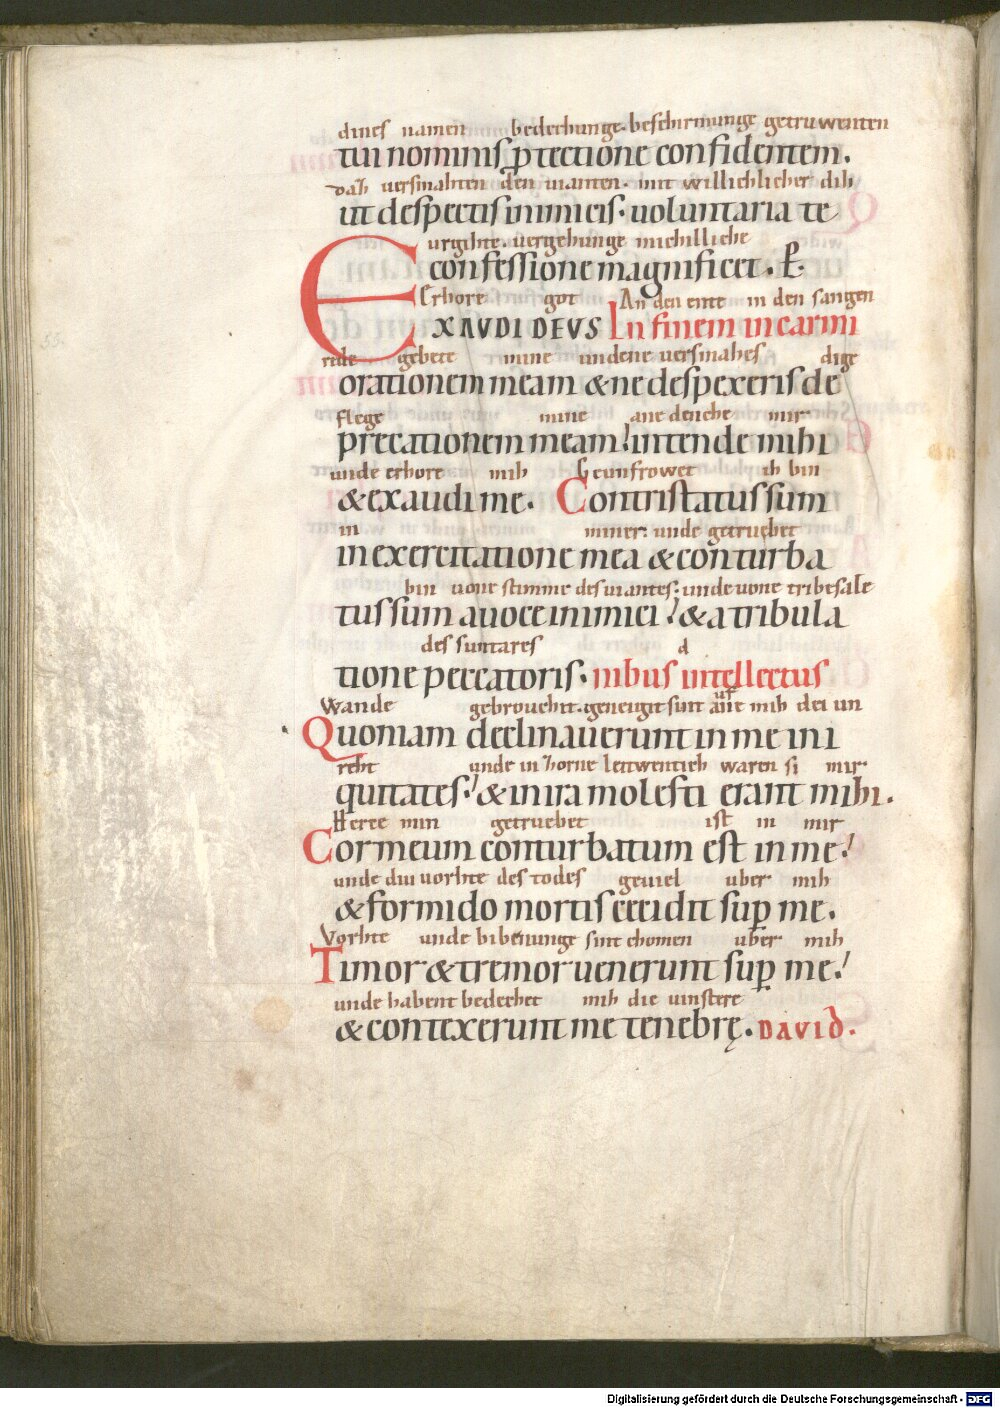 dines namen bedechunge. beschirmunge getruwenten
tui nominis ꝓtectione confidentem.
daz versmahten den vianten. mit willichlicher dih
ut despectis inimicis. uoluntaria te
urgihte. vergebunge michilliche
confessione magnificet. P.
Erhore got An den ente in den sangen
EXAUDI DEUS In finem in carmi
rede gebete mine undene versmahes dige
orationem meam & ne despexeris de
flege mine ane denche mir
precationem meam! intende mihi
unde erhore mih Geunfrowet ih bin
& exaudi me. Contristatus sum
in miner. unde getruebet
in exercitatione mea & conturba
bin vone stimme des viantes. unde vone tribesale
tus sum a uoce inimici! & a tribula
des suntares d
tione peccatoris. nibus intellectus
Wande gebrouchit. geneigit sint auf mih dei un
Quoniam declinauerunt in me ini
reht unde in zorne leitwentich waren si mir
quitates! & in ira molesti erant mihi.
Herce min getruebet ist in mir
Cor meum conturbatum est in me!
unde diu vorhte des todes geviel uber mih
& formido mortis cecidit sup̱ me.
Vorhte unde bibenunge sint chomen uber mih
Timor & tremor uenerunt sup̱ me!
unde habent bedechet mih die vinstere
& contexerunt me tenebrę. DAVID.
55.
Digitalisierung gefördert durch die Deutsche Forschungsgemeinschaft - DFG